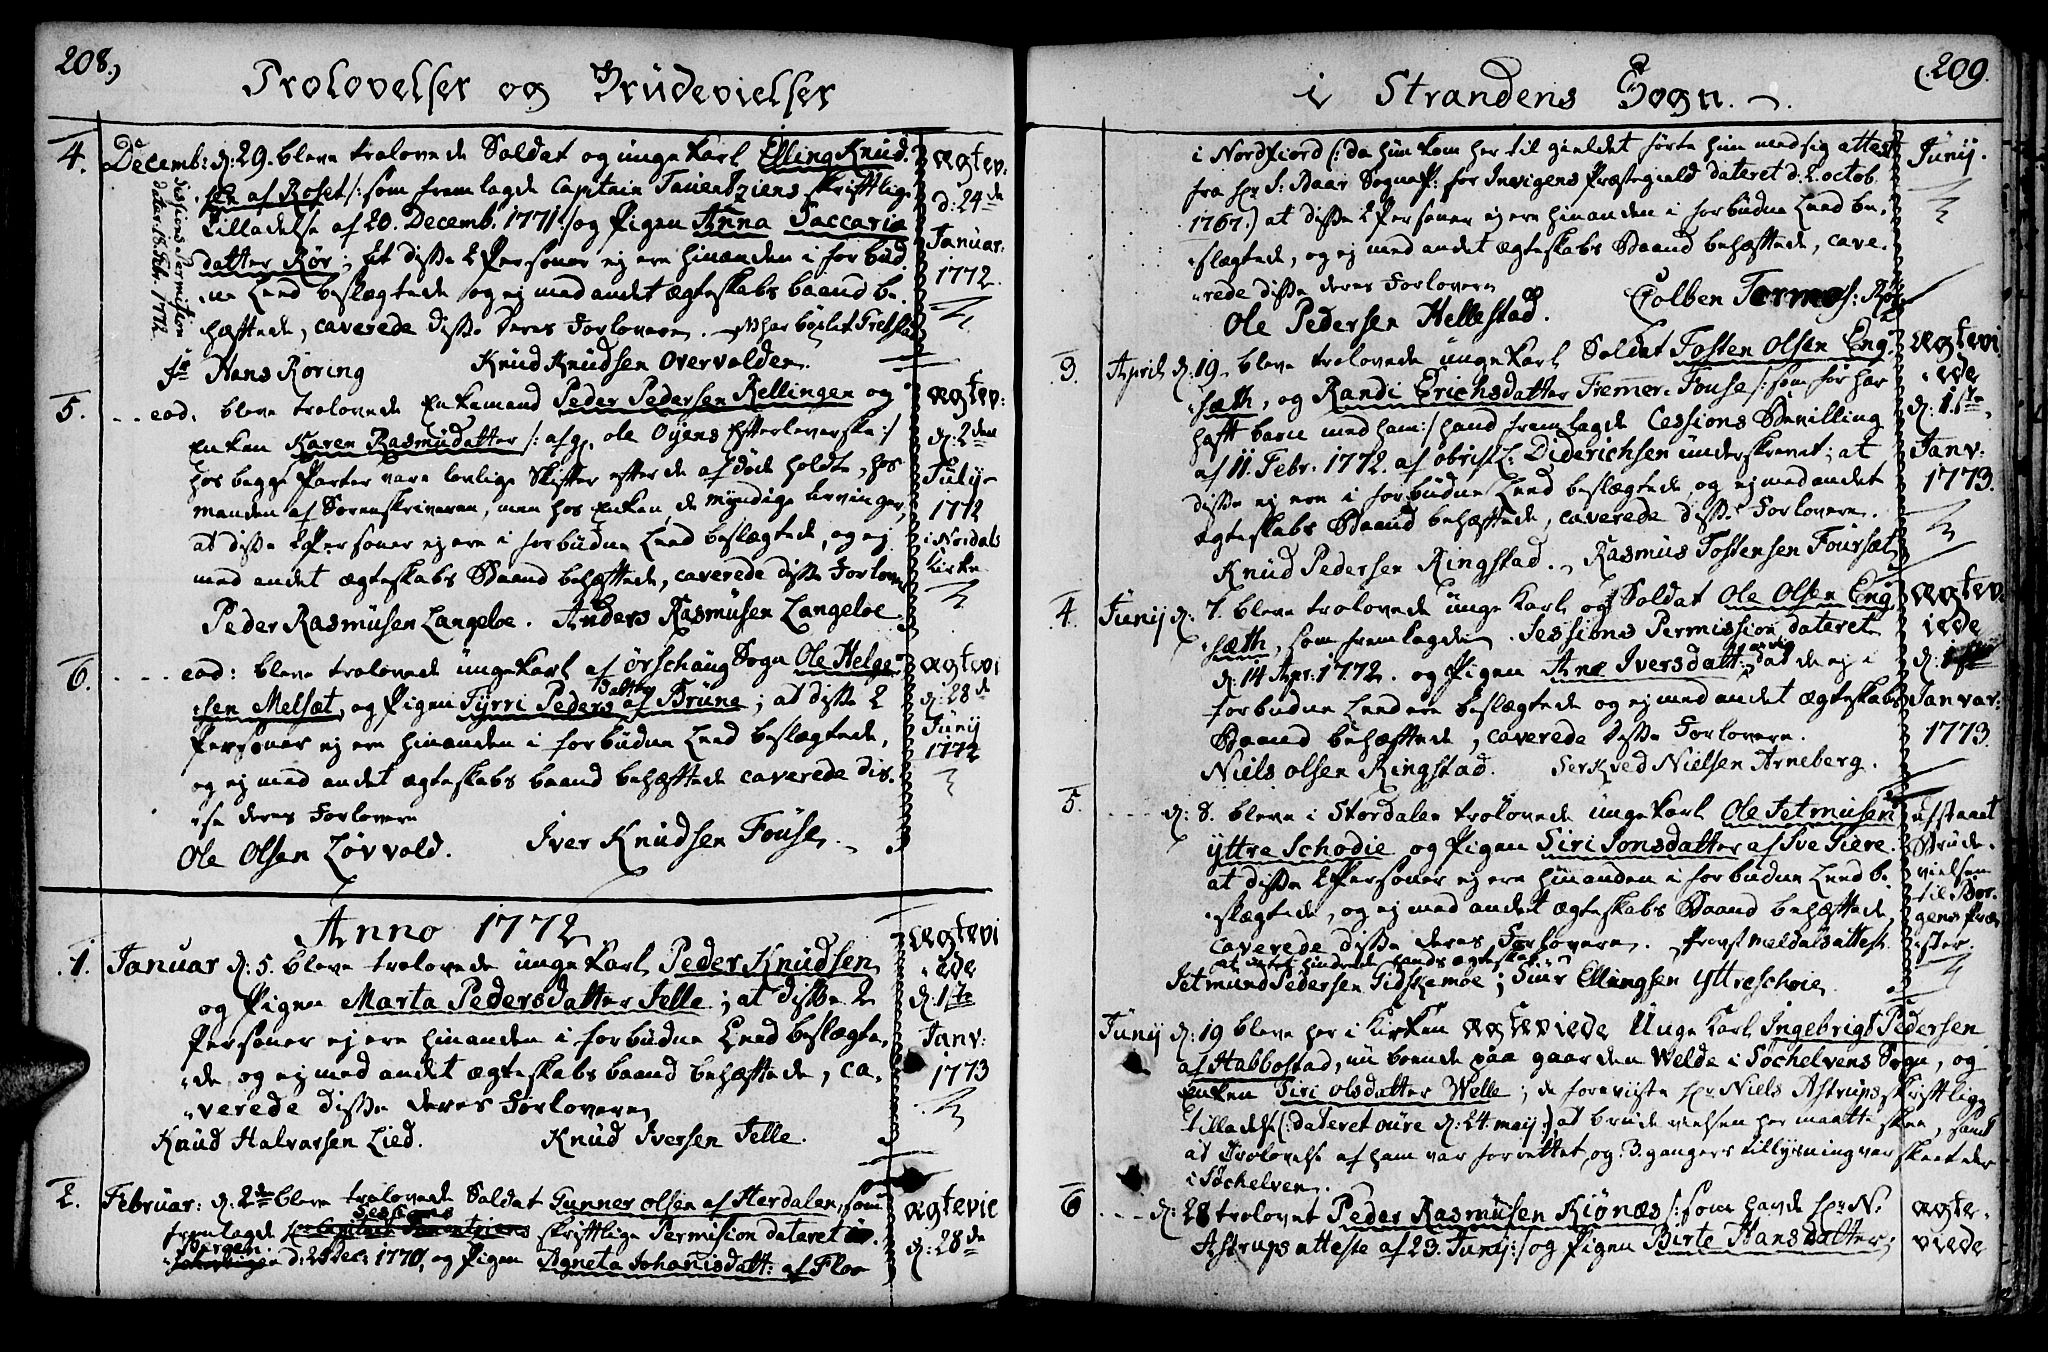 208.)
Trolovelser og Brudevielser
4. Decemb: d: 29. bleve trolovede Soldat og unge karl Elling Knud-
sen af Roset /: som fremlagde Capitain Tauentziens skriftlige
tilladelse af 20. Decemb. 1771 :/ og Pigen Anna Saccaria
datter Rør; at disse 2 Personer ej ere hinanden i forbud-
ne Leed beslægtede og ej med andet ægteskabs baand be-
hæftede, caverede disse deres Forlovere.
Sessions Permition
dater. 18. Febr. 1772.
Hans Röring Knud Knudsen Overvolden.
Ægtev:
d: 24de
Januar.
1772.
5. eod. bleve trolovede Enkemand Peder Pedersen Rellingen og
Enken Karen Rasmusdatter /: afg. Ole Öyens Efterleverske :/
hos begge Parter vare lovlige Skifter efter de afdöde holdte, hos
manden af Sorenskriveren, men hos Enken de myndige arvinger,
at disse 2 Personer ej ere i forbudne Leed beslægtede, og ej
med andet ægteskabs Baand behæftede, caverede disse Forlovere
Peder Rasmusen Langeloe. Anders Rasmusen Langeloe
Ægtev:
d: 2den
July
1772
i Nordals
Kirke
6. eod: bleve trolovede unge karl af Örschaug Sogn Ole Helge-
sen Melsæt, og Pigen Tyrri Peders datter af Brune; at disse 2
Personer ej ere hinanden i forbudne Leed beslægtede,
og ej med andet ægteskabs baand behæftede caverede dis-
se deres Forlovere
Ole Olsen Lövvold. Iver Knudsen Fouse.
Ægtevi
d: 28de
Junij
1772
Anno 1772
1. Januar d: 5. bleve trolovede unge karl Peder Knudsen
og Pigen Marta Pedersdatter Jelle; at disse 2
Personer ej ere hinanden i forbudne Leed beslægte-
de, og ej med andet ægteskabs baand behæftede, ca-
verede disse deres Forlovere
Knud Halvarsen Lied. Knud Iversen Jelle.
Ægtevi
ede
d: 1ste
Janv:
1773
2. Februar: d: 2de bleve trolovede Soldat Gunner Olsen af Herdalen, som
fremlagde Sessions skriftlige Permision dateret
Bergen d: 2 Dec: 1770, og Pigen Agneta Johanisdatt: af Floe
Ægtevie
d: 28de
(209.
i Strandens Sogn.
i Nordfiord (: da hun kom her til gieldet förte hun med sig attest
fra hr. S: Baar Sogne P: for Invigens Præstegield dateret d: 2. octob.
1767.) at disse 2 Personer ej ere hinanden i forbudne Leed be-
slægtede, og ej med andet ægteskabs Baand behæftede, cave-
rede disse deres Forlovere
Ole Pedersen Hellestad. Colben Tormos: Rør
Junij.
3. April d: 19. bleve trolovede unge karl Soldat Tosten Olsen Eng-
sæth, og Randi Erichsdatter Fremer-Fouse /: som för har
haft barn med ham :/ hand fremlagde Cessions Bevilling
af 11. Febr. 1772. af obristl: Diderichsen underskrevet; at
disse ej ere i forbudne Leed beslægtede og ej med andet
ægteskabs Baand behæftede, caverede disse Forlovere.
Knud Pedersen Ringstad. Rasmus Tostensen Foursæt
Ægtevi
ede
d: 1ste
Janv:
1773.
4. Junij d: 7. bleve trolovede unge Karl og Soldat Ole Olsen Eng-
sæth, som fremlagde Sessions Permission dateret
d: 14 Apr: 1772. og Pigen Ane Iversdatt: at de ej i
forbudne Leed ere beslægtede og ej med andet ægteskabs
Baand behæftede, caverede disse Forlovere.
Niels Olsen Ringstad. Serkved Nielsen Arneberg.
Ægtev
iede
Janvar:
1773.
5. d: 8. bleve i Stordalen trolovede unge karl Ole Jetmusen
yttre Schodie og Pigen Siri Jonsdatter af Sve Siere.
at disse 2 Personer ej ere hinanden i forbudne Leed be-
slægtede, og ej med andet ægteskabs Baand behæftede,
caverede disse deres Forlovere. Provst Meldals attest
at intet hindrede hands ægteskab.
Jetmund Pedersen Gidskemoe; Siur Ellingsen Yttreschoie
Brude-
vielsen
til Bor-
gens Præ-
ster.
Junij d: 19 bleve her i Kirken Ægteviede Unge Karl Ingebrigt Pedersen
af Habbostad, nu boende paa gaarden Welde i Söchelvens Sogn, og
Enken Siri Olsdatter Welle; de foreviiste hr. Niels Astrups skriftlige
tilladelse (: dateret oure d: 24. maij :) at brudevielsen her maatte skee, samt
at Trolovelse af ham var forrettet, og 3. gangers tillysning var skeet der
i Söchelven.
6 d: 28 trolovet Peder Rasmusen Kiönæs /: som havde hr. N.
Astrups atteste af 23. Junij :/ og Pigen Birte Hansdatter;
Ægte-
viede